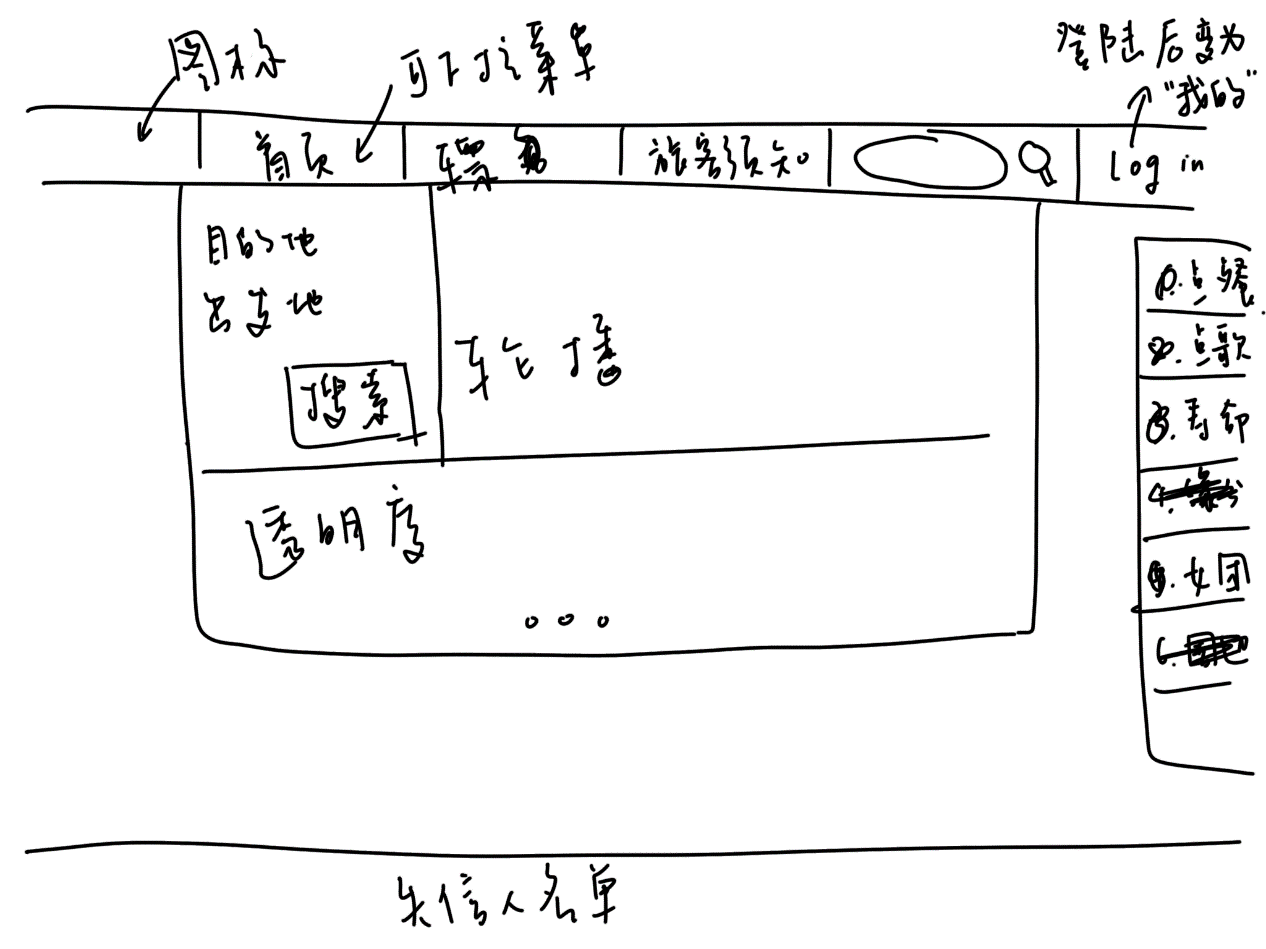 图标
可下拉菜单
登陆后变为
"我的"
首页
旅客须知
Log in
目的地
出发地
搜索
轮播
透明度
1. 点餐
2. 点歌
3.
5. 女团
6.
失信人名单